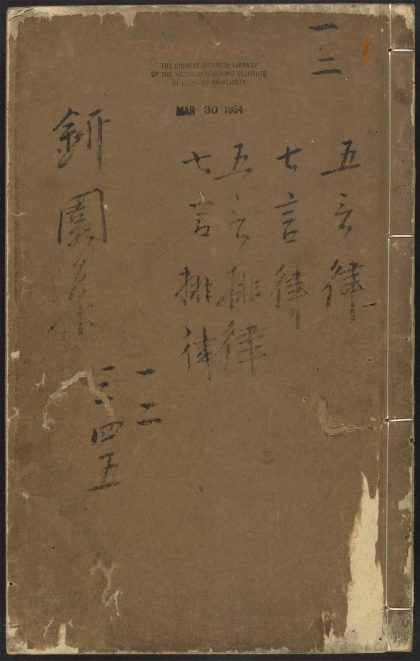 THE CHINESE-JAPANESE LIBRARY
OF THE HARVARD-YENCHING INSTITUTE
AT HARVARD UNIVERSITY
MAR 30 1954
一二
五言律
七言律
五言排律
七言排律
園
一二
三四五